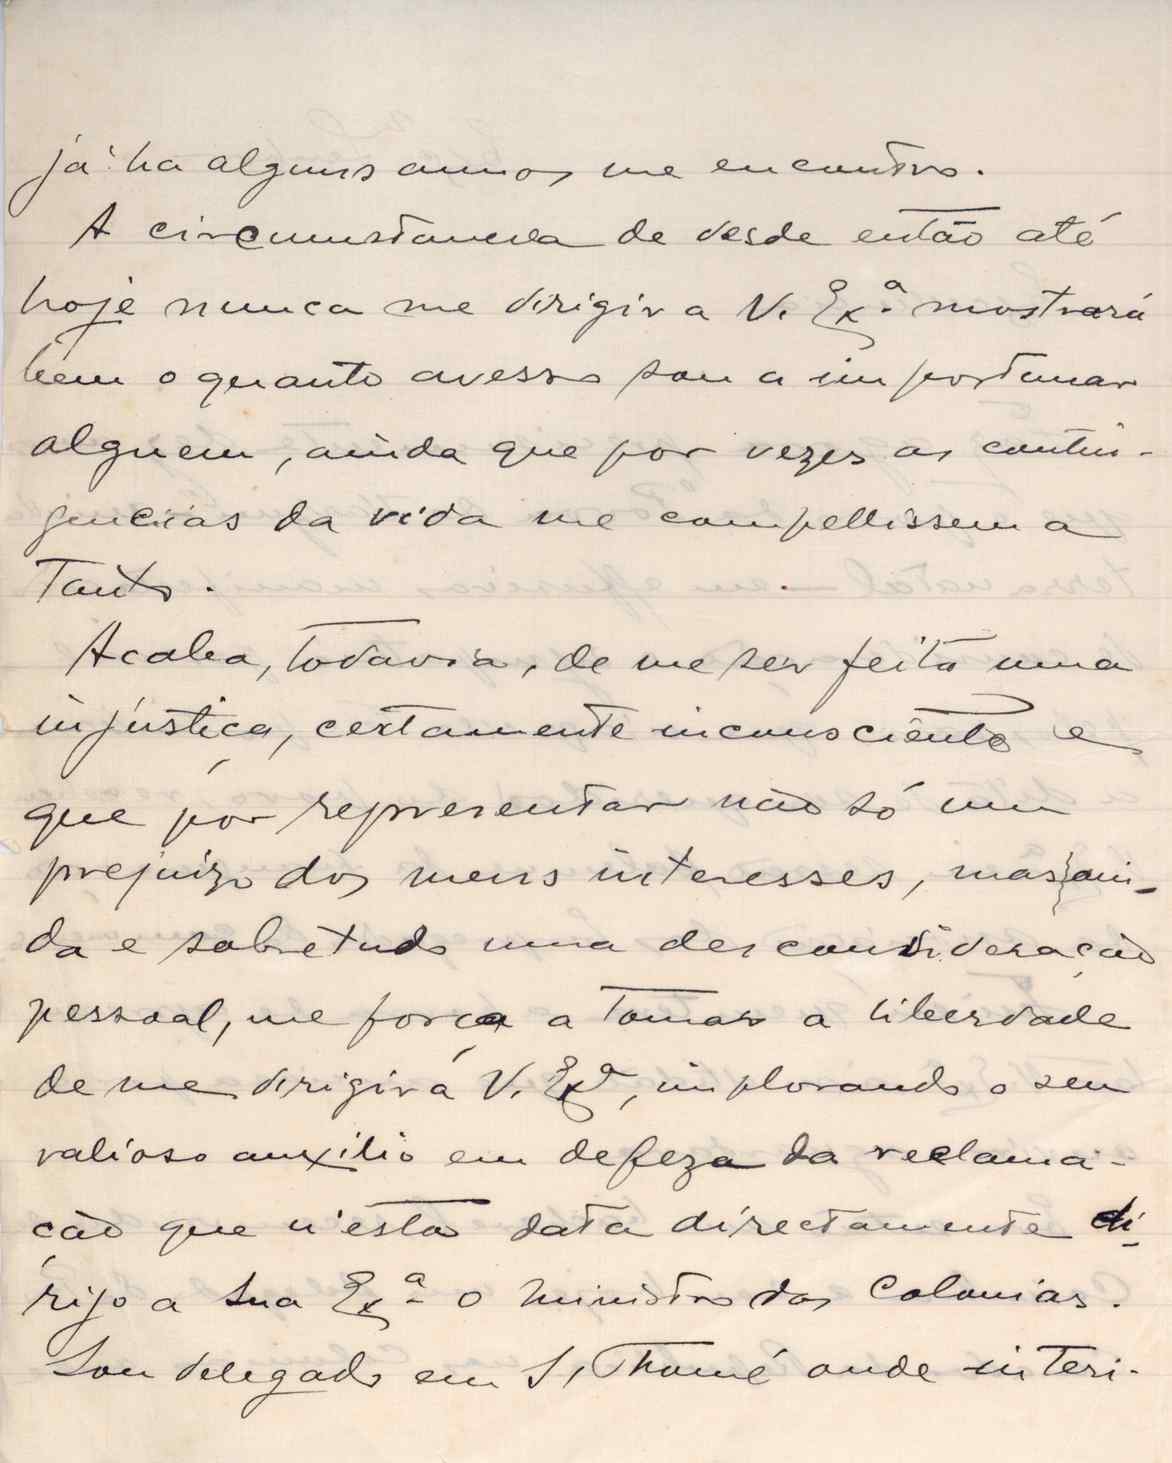 já ha alguns annos me encontro.
A circumstancia de desde então até
hoje nunca me dirigir a V. Exª mostrará
bem o quanto avesso sou a importunar
alguem, ainda que por vezes as contin-
gencias da vida me compellissem a
tanto.
Acaba, todavia, de me ser feita uma
injustiça, certamente inconsciente e
que por representar não só um
prejuizo dos meus interesses, mas ain-
da e sobretudo uma desconsideração
pessoal, me força a tomar a liberdade
de me dirigir á V. Exª, implorando o seu
valioso auxilio em defeza da reclama-
ção que n'esta data directamente di-
rijo a Sua Exª o Ministro das Colonias.
Sou delegado em S. Thomé onde interi-